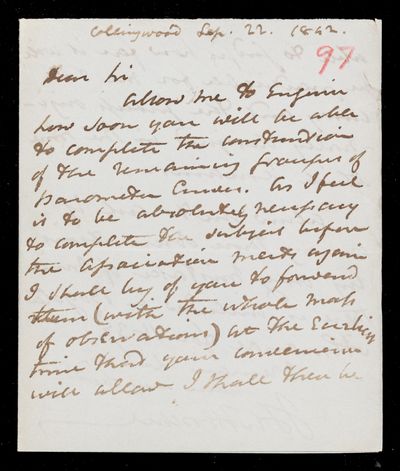 Collingwood Sep. 22. 1842.
97
Dear Sir
Allow me to Enquire
how soon you will be able
to complete the construction
of the remaining Groupes of
Barometer Curves. As I feel
it to be absolutely necessary
to complete the subject before
the Association meets again
I shall beg of you to forward
them (with the whole mass
of observations) at the Earliest
time that your convenience
will allow I shall then be